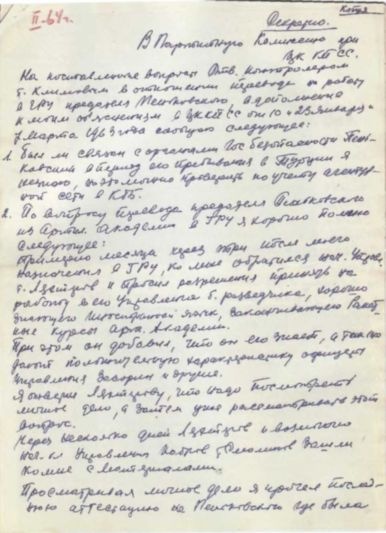 Копия
II-64г.
Секретно.
В Партийную Комиссию при
ЦК КПСС.
На поставленные вопросы Отв. контролером
т. Климовым в отношении перевода на работу
в ГРУ предателя Пеньковского, в дополнение
к моим объяснениям в ЦК КПСС от 10 и 23 января и
7 марта 1963 года сообщаю следующее:
1. Был ли связан с органами Гос безопасности Пень-
ковский в период его пребывания в Турции я
не знаю, возможно проверить по учету агентур-
ной сети в КГБ.
2. По вопросу перевода предателя Пеньковского
из Артил. Академии в ГРУ я хорошо помню
следующее:
Примерно месяца через три после моего
назначения в ГРУ, ко мне обратился нач. Управ.
т. и просил разрешения принять на
работу в его Управление б. разведчика, хорошо
знающего язык, заканчивающего Ракет-
ные курсы арт. Академии.
При этом он добавил, что он его знает, а также
дают положительную характеристику офицеры
Управления и другие.
Я ответил, что надо посмотреть
личное дело, а затем уже рассматривать этот
вопрос.
Через несколько дней и
нач-к Управления кадров Смоликов зашли
ко мне с материалами.
Просматривая личное дело я прочел послед-
нюю аттестацию на Пеньковского где была